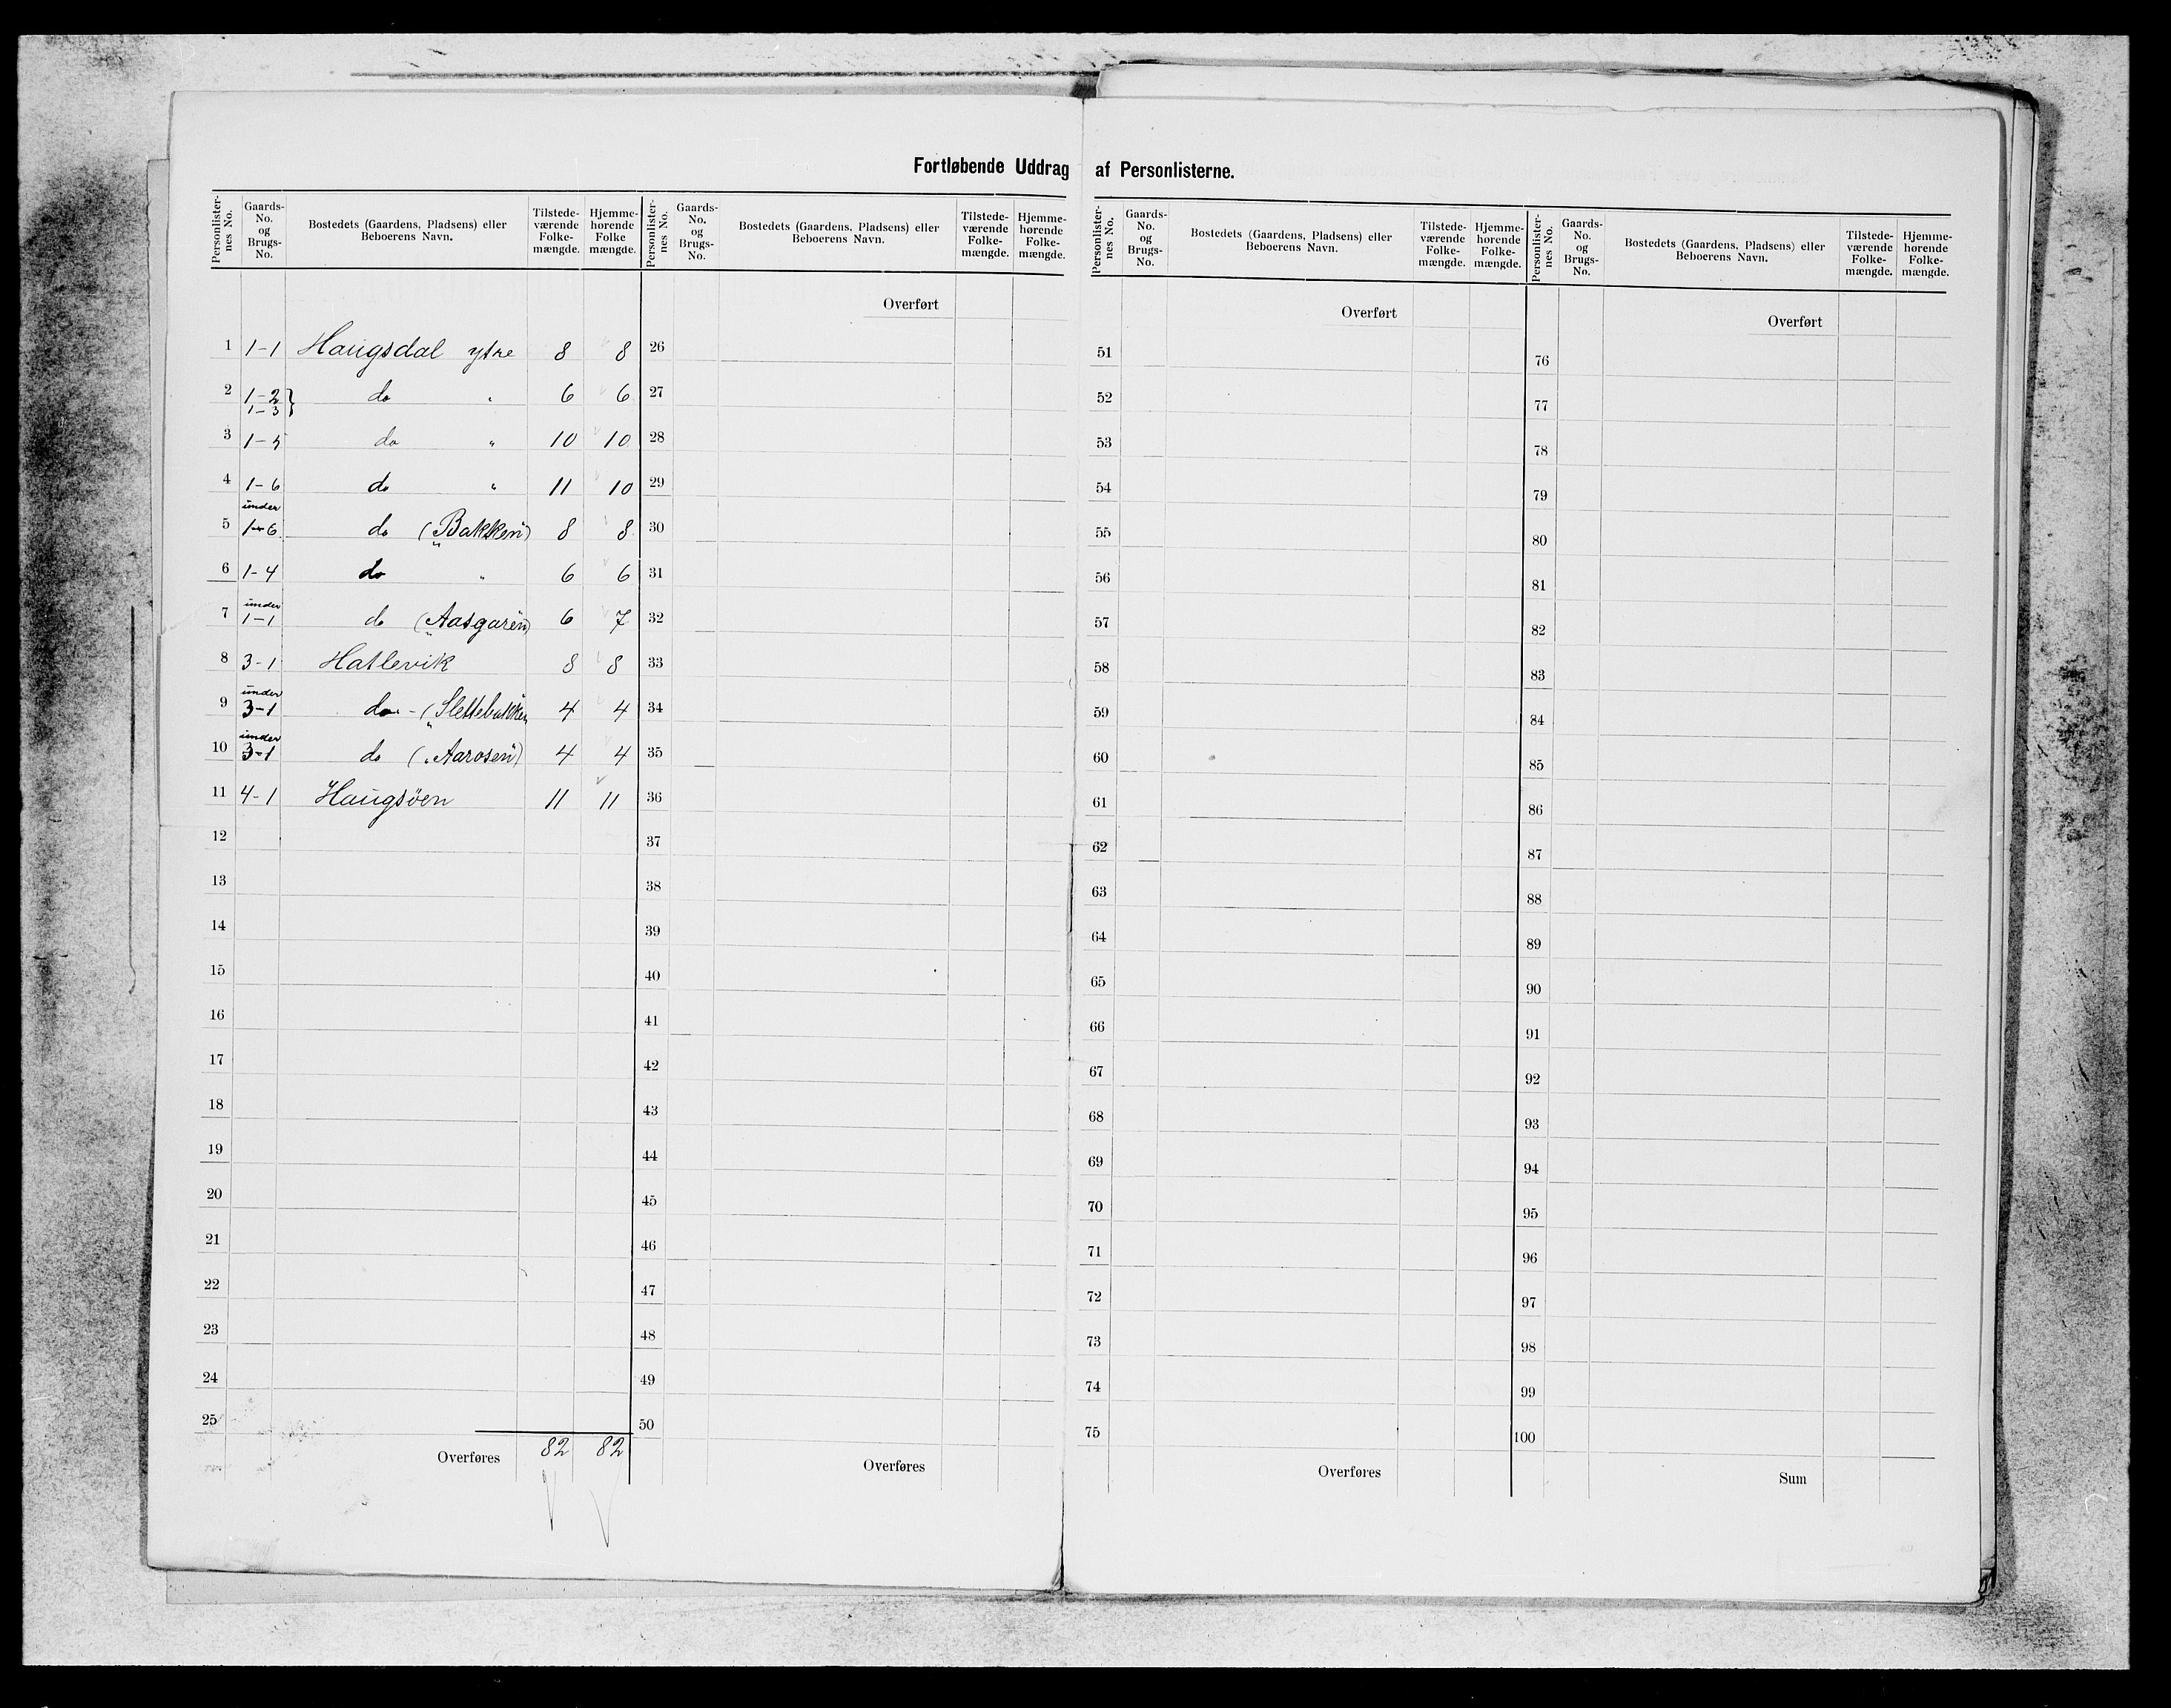 Fortløbende Uddrag af Personlisterne.
Personlister-nes No. Gaards-No. og Brugs-No. Bostedets (Gaardens, Pladsens) eller Beboerens Navn. Tilstede-værende Folke-mængde. Hjemme-hørende Folke mængde.
1 1-1 Haugsdal ytre 8 8
2 1-2 1-3 } do " 6 6
3 1-5 do " 10 10
4 1-6 do " 11 10
5 under 1-6 do ("Bakken") 8 8
6 1-4 do " 6 6
7 under 1-1 do ("Aasgaren") 6 7
8 3-1 Hatlevik 8 8
9 under 3-1 do - ("Slettebakken 4 4
10 under 3-1 do ("Aarosen") 4 4
11 4-1 Haugsöen 11 11
12
13
14
15
16
17
18
19
20
21
22
23
24
25
Overføres 82 82
Personlister-nes No. Gaards-No. og Brugs-No. Bostedets (Gaardens, Pladsens) eller Beboerens Navn. Tilstede-værende Folke-mængde. Hjemme-hørende Folke-mængde.
Overført
26
27
28
29
30
31
32
33
34
35
36
37
38
39
40
41
42
43
44
45
46
47
48
49
50
Overføres
Personlister-nes No. Gaards-No. og Brugs-No. Bostedets (Gaardens, Pladsens) eller Beboerens Navn. Tilstede-værende Folke-mængde. Hjemme-hørende Folke-mængde.
Overført
51
52
53
54
55
56
57
58
59
60
61
62
63
64
65
66
67
68
69
70
71
72
73
74
75
Overføres
Personlister-nes No. Gaards-No. og Brugs-No. Bostedets (Gaardens, Pladsens) eller Beboerens Navn. Tilstede-værende Folke-mængde. Hjemme-hørende Folke-mængde.
Overført
76
77
78
79
80
81
82
83
84
85
86
87
88
89
90
91
92
93
94
95
96
97
98
99
100
Sum